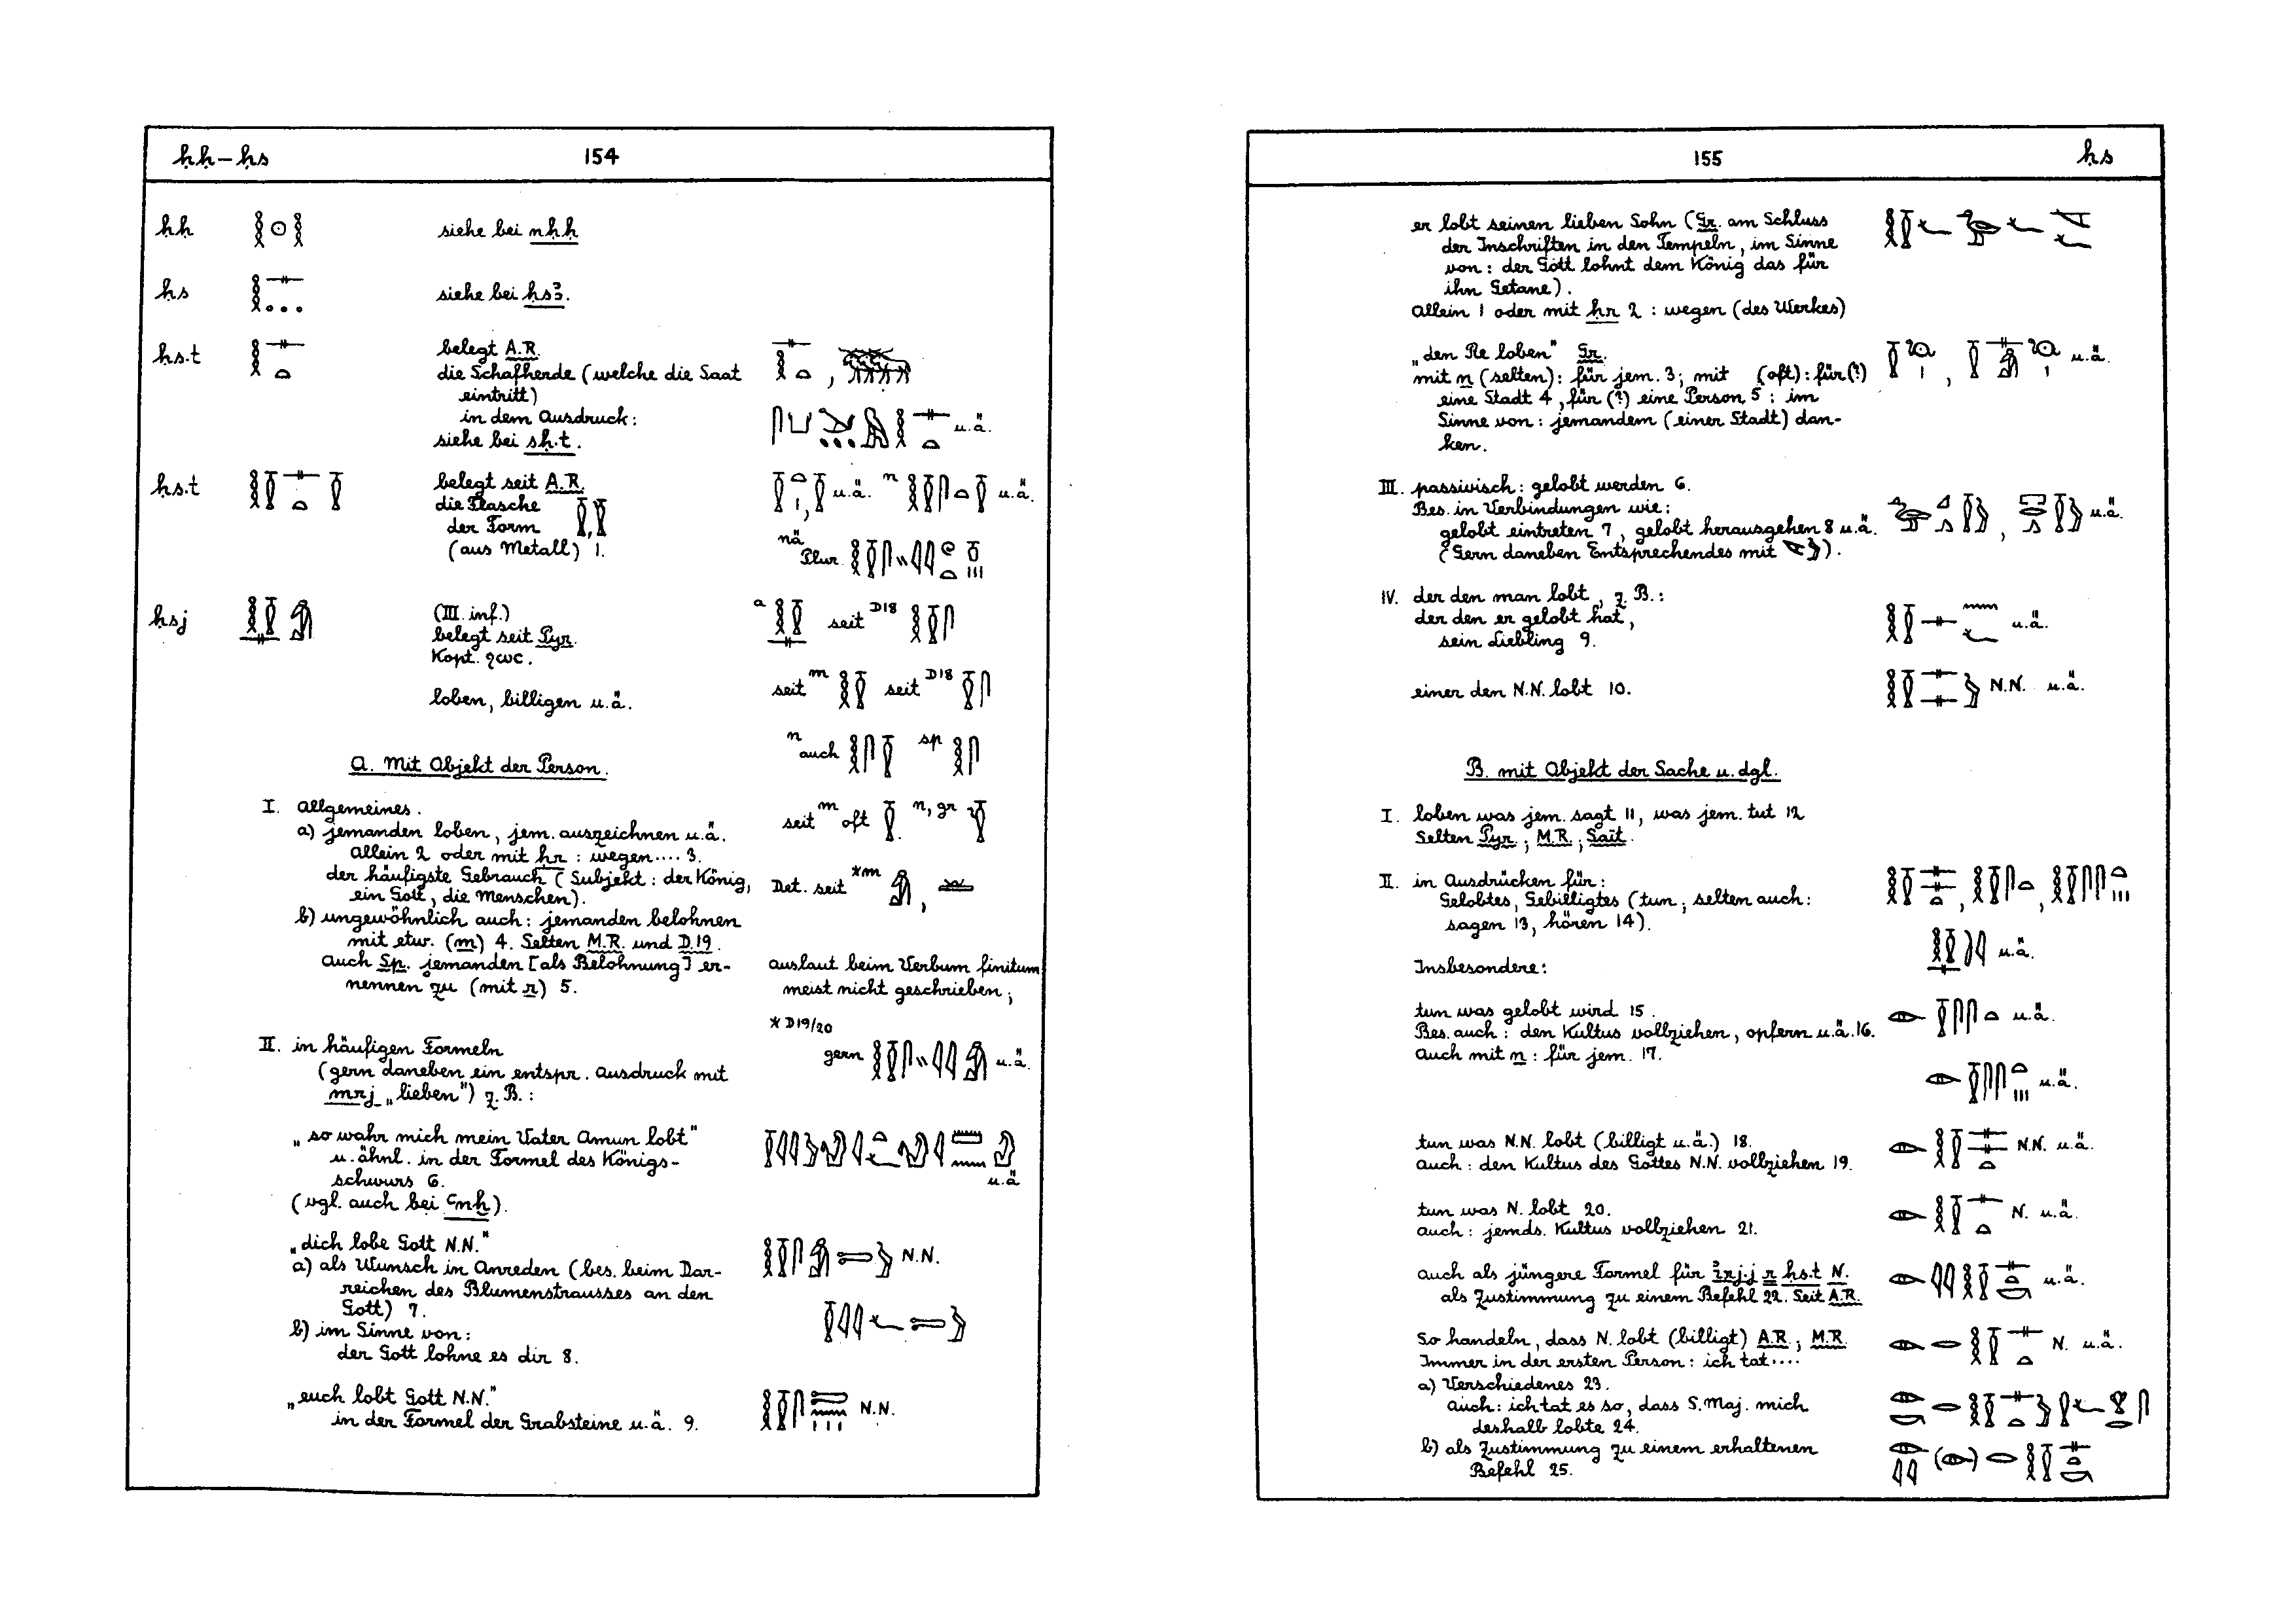 ḥḥ–ḥs 154
ḥḥ siehe bei nḥḥ
ḥs siehe bei ḥsꜣ.
ḥs.t belegt A.R.
die Schafherde (welche die Saat
eintritt)
in dem Ausdruck: u.ä.
siehe bei sḫ.t.
ḥs.t belegt seit A.R. u.ä. n u.ä.
die Flasche
der Form
(aus Metall) 1. nä Plur.
ḥsj (III. inf.) a seit D18
belegt seit Pyr.
Kopt. ϩⲱⲥ.
seit m seit D18
loben, billigen u.ä.
n auch sp
A. Mit Objekt der Person.
I. Allgemeines. seit m oft n, gr
a) jemanden loben, jem. auszeichnen u.ä.
Allein 2 oder mit ḥr : wegen .... 3.
der häufigste Gebrauch (Subjekt: der König, Det. seit *m
ein Gott, die Menschen).
b) ungewöhnlich auch: jemanden belohnen
mit etw. (m) 4. Selten M.R. und D.19.
auch Sp. jemanden [als Belohnung] er- auslaut beim Verbum finitum
nennen zu (mit r) 5. meist nicht geschrieben;
* D19/20
II. in häufigen Formeln gern u.ä.
(gern daneben ein entspr. Ausdruck mit
mrj „lieben") z.B.:
„so wahr mich mein Vater Amun lobt"
u. ähnl. in der Formel des Königs-
schwurs 6. u.ä
(vgl. auch bei ꜥnḫ).
„dich lobe Gott N.N." N.N.
a) als Wunsch in Anreden (bes. beim Dar-
reichen des Blumenstrausses an den
Gott) 7.
b) im Sinne von:
der Gott lohne es dir 8.
„euch lobt Gott N.N." N.N.
in der Formel der Grabsteine u.ä. 9.
155 ḥs
er lobt seinen lieben Sohn (Gr. am Schluss
der Inschriften in den Tempeln, im Sinne
von: der Gott lohnt dem König das für
ihn Getane).
Allein 1 oder mit ḥr 2 : wegen (des Werkes)
„den Re loben" Gr. u.ä.
mit n (selten): für jem. 3; mit (oft): für(?)
eine Stadt 4, für (?) eine Person 5 : im
Sinne von: jemandem (einer Stadt) dan-
ken.
III. passivisch: gelobt werden 6.
Bes. in Verbindungen wie: u.ä.
gelobt eintreten 7, gelobt herausgehen 8 u.ä.
(Gern daneben Entsprechendes mit ).
IV. der den man lobt, z.B.:
der den er gelobt hat, u.ä.
sein Liebling 9.
einer den N.N. lobt 10. N.N. u.ä.
B. mit Objekt der Sache u. dgl.
I. loben was jem. sagt 11, was jem. tut 12
Selten Pyr.; M.R.; Sait.
II. in Ausdrücken für:
Gelobtes, Gebilligtes (tun; selten auch:
sagen 13, hören 14).
u.ä.
Insbesondere:
tun was gelobt wird 15. u.ä.
Bes. auch: den Kultus vollziehen, opfern u.ä. 16.
Auch mit n : für jem. 17.
u.ä.
tun was N.N. lobt (billigt u.ä.) 18. N.N. u.ä.
auch: den Kultus des Gottes N.N. vollziehen 19.
tun was N. lobt 20. N. u.ä.
auch: jemds. Kultus vollziehen 21.
auch als jüngere Formel für ꞽrj.j r ḥs.t N. u.ä.
als Zustimmung zu einem Befehl 22. Seit A.R.
So handeln, dass N. lobt (billigt) A.R.; M.R. N. u.ä.
Immer in der ersten Person: ich tat....
a) Verschiedenes 23.
auch: ich tat es so, dass S. Maj. mich
deshalb lobte 24.
b) als Zustimmung zu einem erhaltenen
Befehl 25.